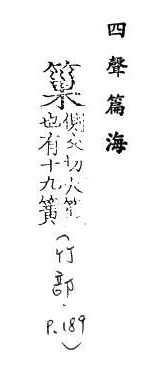 四聲篇海
側交切大笙
也有十九簧
(竹部.P.189)